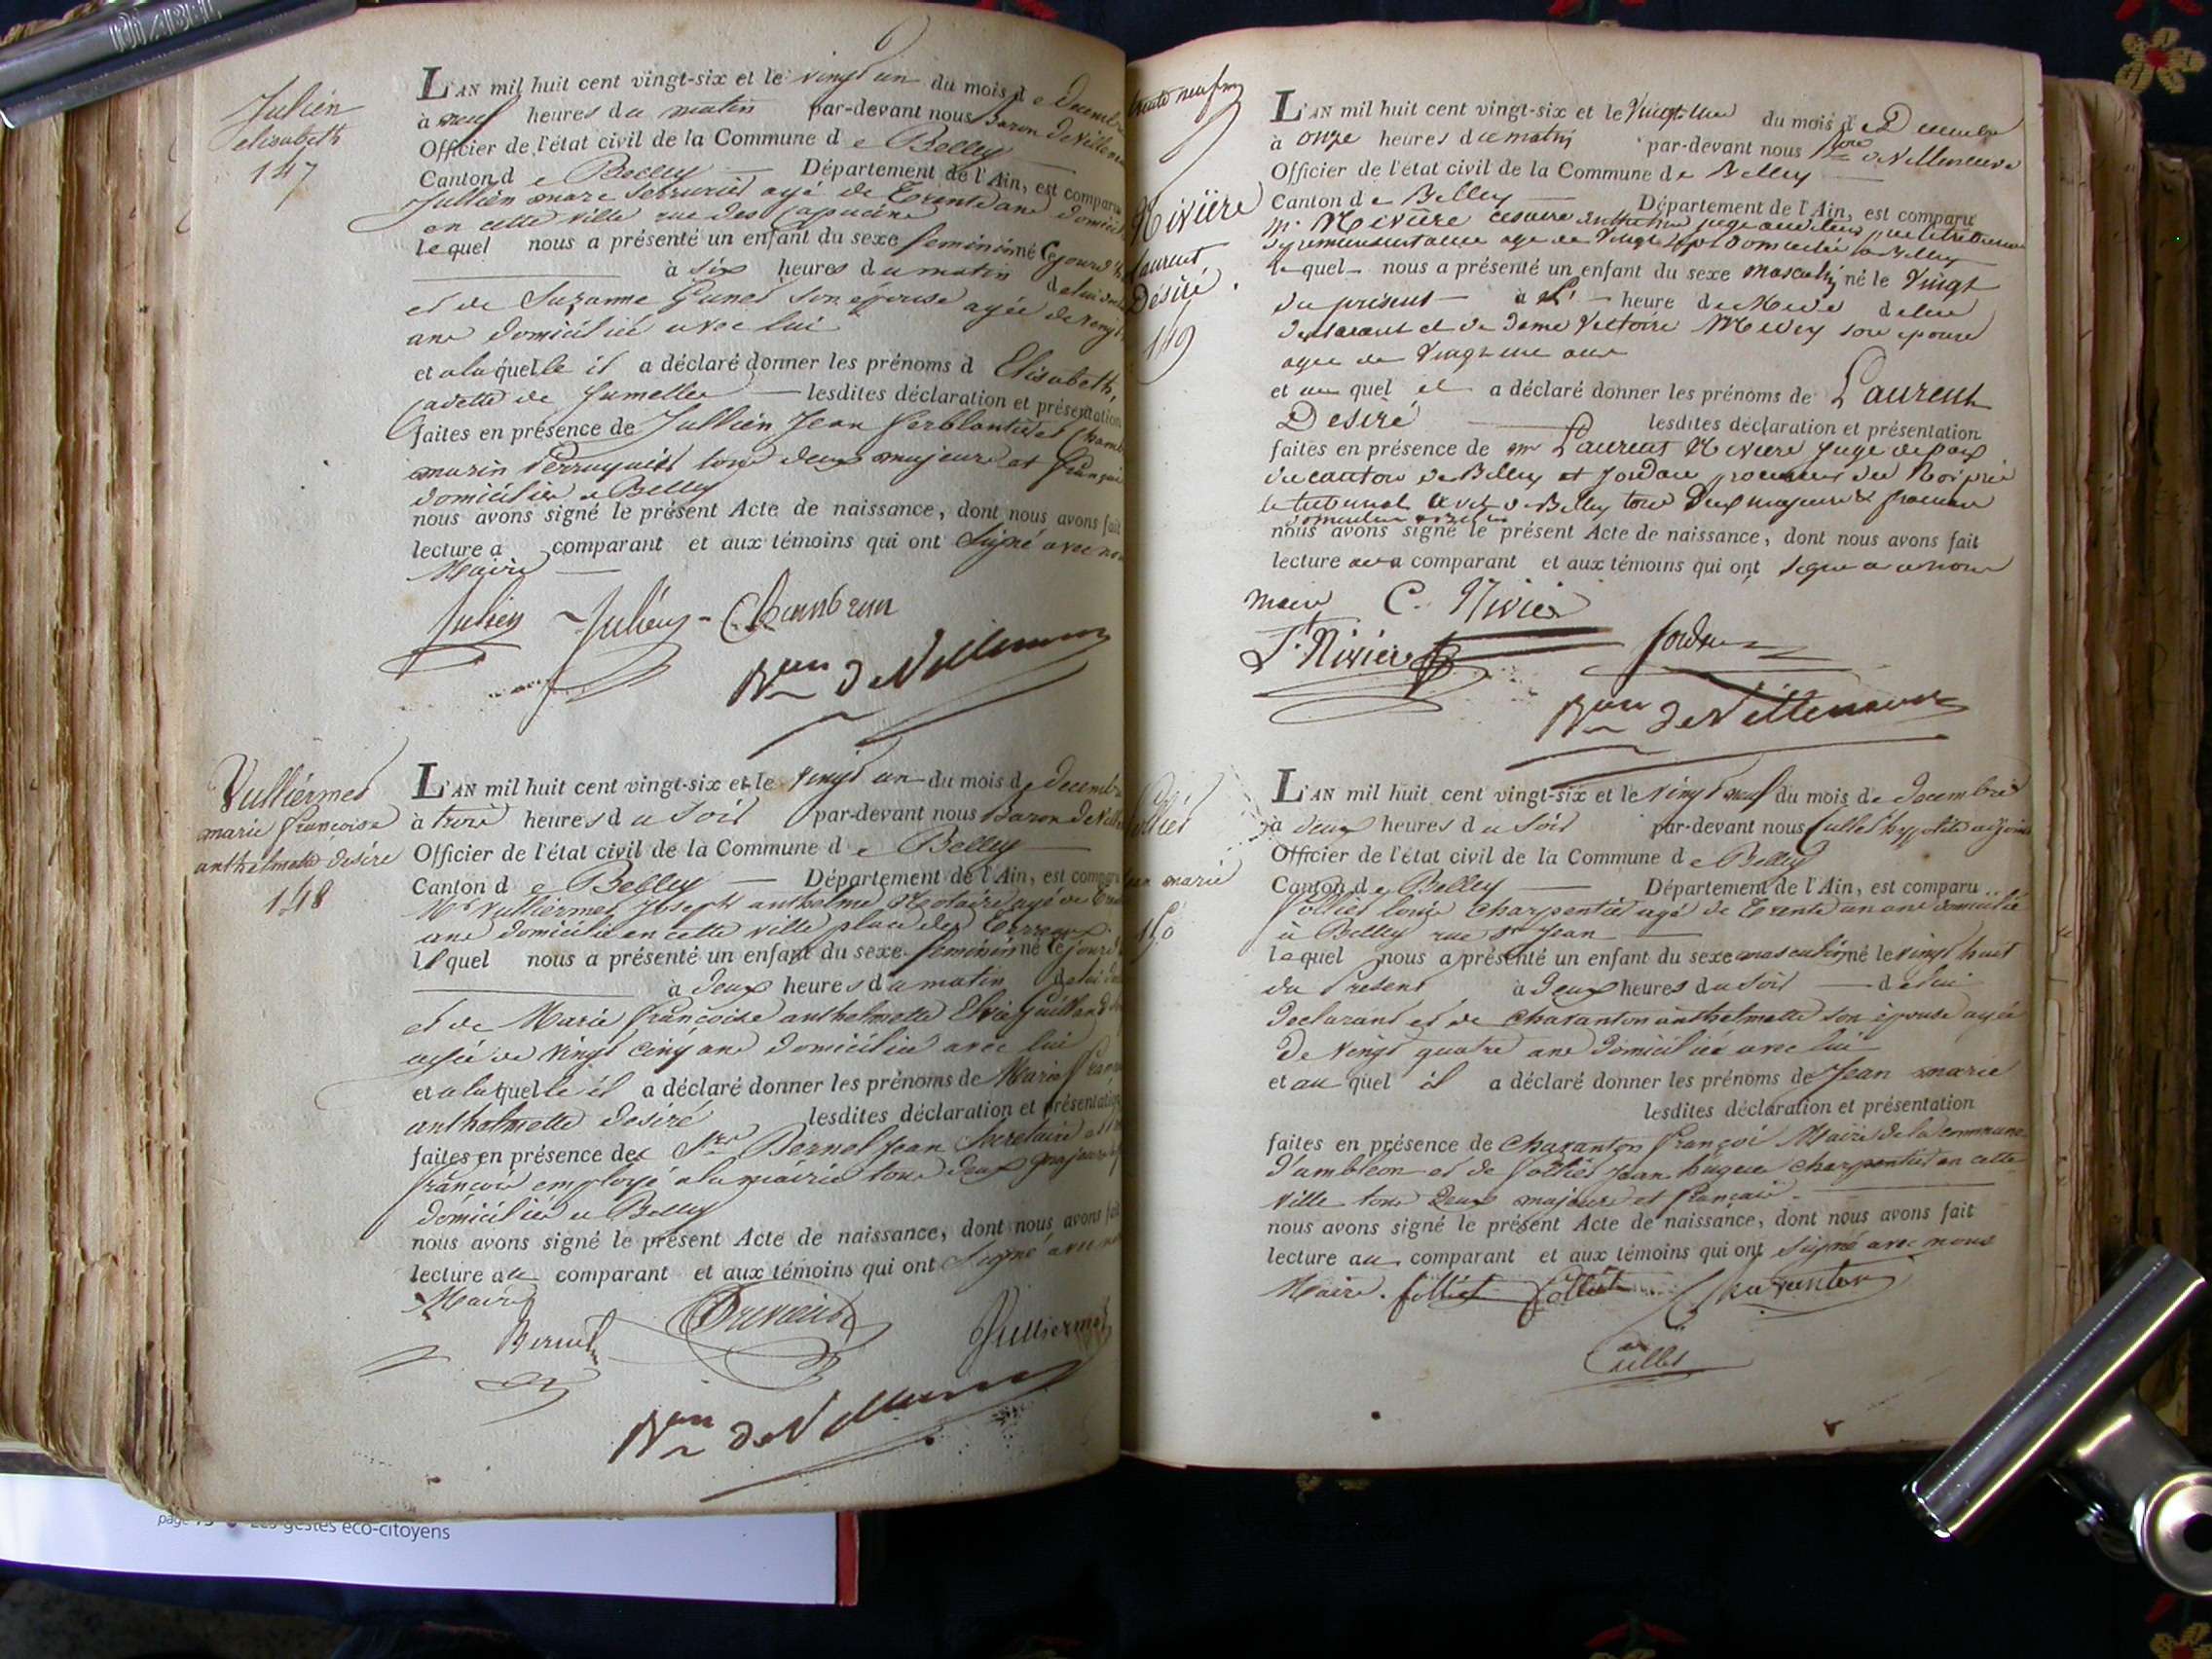 Julien
elisabeth
147
L'AN mil huit cent vingt-six et le vingt un du mois de Decembre
à neuf heures du matin par-devant nous Baron de Villene
Officier de l'état civil de la Commune de Belley
Canton de Belley Département de l'Ain, est comparu
Jullien marc Serrurier agé de trente ans domicilié
en cette ville rue des Capucins
lequel nous a présenté un enfant du sexe feminin né Cejourd'h
à six heures du matin de lui
et de Suzanne son épouse agée de vingt
ans domiciliée avec lui
et a laquelle il a déclaré donner les prénoms d Elisabeth
Cadette de Jumelles lesdites déclaration et présentation
faites en présence de Jullien Jean ferblantier et Chamb
Perruquier tous deux majeurs et français
domiciliés a Belley
nous avons signé le présent Acte de naissance, dont nous avons fait
lecture a comparant et aux témoins qui ont Signé avec nous
Maire
Julien Julien Chambrun
Bon de Villeneuve
Vulliermet
marie françoise
anthelmette desiré
148
L'AN mil huit cent vingt-six et le vingt un du mois de decembre
à trois heures du Soir par-devant nous Baron de Ville
Officier de l'état civil de la Commune de Belley
Canton de Belley Département de l'Ain, est comparu
Mr Vulliermet Joseph anthelme Notaire agé de trente
ans domicilié en cette ville place des Terreaux
lequel nous a présenté un enfant du sexe feminin né Cejourd
à deux heures du matin de lui
et de Marie françoise anthelmette Guilland
agée de vingt cinq ans domiciliée avec lui
et a laquelle il a déclaré donner les prénoms de Marie fran
anthelmette desiré lesdites déclaration et présentation
faites en présence de Srs Bernel Jean Secretaire
françois employé a la mairie tous deux majeurs
domiciliés a Belley
nous avons signé le présent Acte de naissance, dont nous avons fait
lecture au comparant et aux témoins qui ont Signé avec nous
Maire
Bernel Vulliermet
Bon de Villeneuve
Nivière
Laurent
Désiré
149
L'AN mil huit cent vingt-six et le Vingt un du mois de Decembre
à onze heures du matin par-devant nous Bon de Villeneuve
Officier de l'état civil de la Commune de Belley
Canton de Belley Département de l'Ain, est comparu
mr Nivière Cesaire juge auditeur
age de Vingt sept domicilié a Belley
lequel nous a présenté un enfant du sexe Masculin né le Vingt
du présent à heure de de lui
declarant et de Dame Victoire son épouse
agée de Vingt un ans
et au quel il a déclaré donner les prénoms de Laurent
Desiré lesdites déclaration et présentation
faites en présence de mr Laurent Nivière Juge de paix
du canton de Belley et Jordan procureur du Roi près
le tribunal Civil de Belley tous Deux majeurs & francais
domiciliés a Belley
nous avons signé le présent Acte de naissance, dont nous avons fait
lecture au comparant et aux témoins qui ont signé avec nous
Maire C. Nivière
Lt Nivière Jordan
Bon de Villeneuve
marie
150
L'AN mil huit cent vingt-six et le vingt neuf du mois de decembre
à deux heures du Soir par-devant nous Cullet hypolite adjoint
Officier de l'état civil de la Commune de Belley
Canton de Belley Département de l'Ain, est comparu
Folliet louis Charpentier agé de trente un ans domicilié
à Belley rue St Jean
lequel nous a présenté un enfant du sexe masculin né le vingt huit
du Present à deux heures du Soir de lui
declarant et de Charanton anthelmette son épouse agée
de vingt quatre ans domiciliée avec lui
et au quel il a déclaré donner les prénoms de Jean marie
lesdites déclaration et présentation
faites en présence de Charanton françois Maire de la commune
d'ambleon et de Folliet Jean hugues charpentier en cette
ville tous deux majeurs et français
nous avons signé le présent Acte de naissance, dont nous avons fait
lecture au comparant et aux témoins qui ont signé avec nous
Maire. folliet folliet Charanton
Cullet
Les gestes éco-citoyens